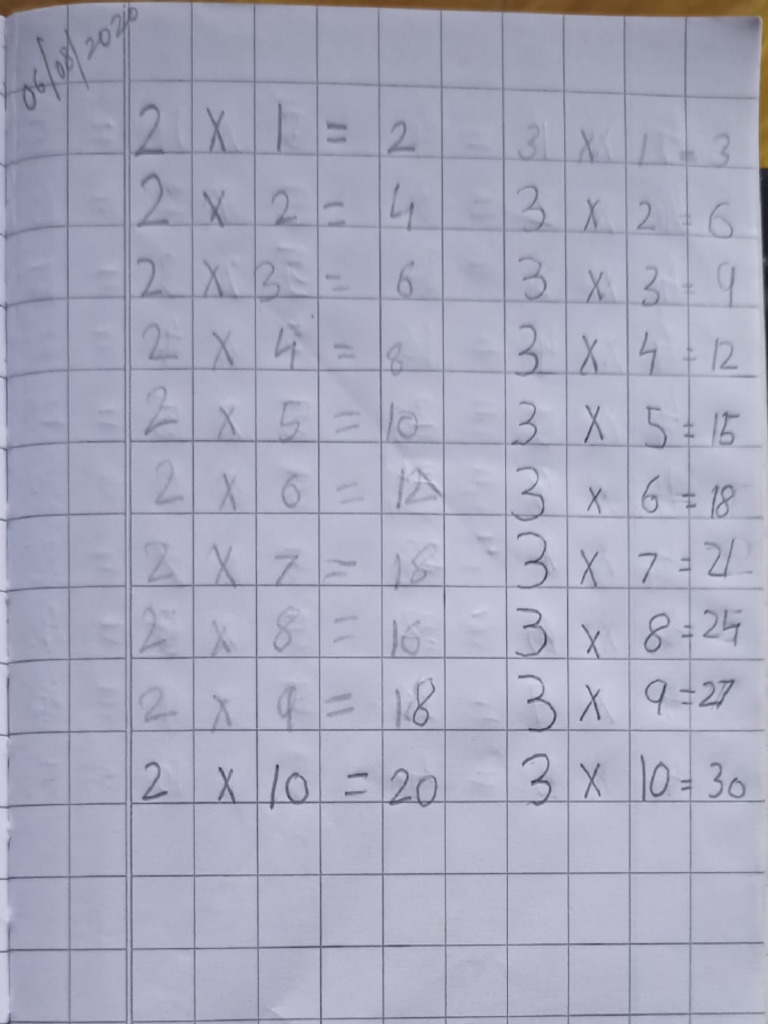 06/08/2020
2 x 1 = 2 3 x 1 = 3
2 x 2 = 4 3 x 2 = 6
2 x 3 = 6 3 x 3 = 9
2 x 4 = 8 3 x 4 = 12
2 x 5 = 10 3 x 5 = 15
2 x 6 = 12 3 x 6 = 18
2 x 7 = 18 3 x 7 = 21
2 x 8 = 16 3 x 8 = 24
2 x 9 = 18 3 x 9 = 27
2 x 10 = 20 3 x 10 = 30